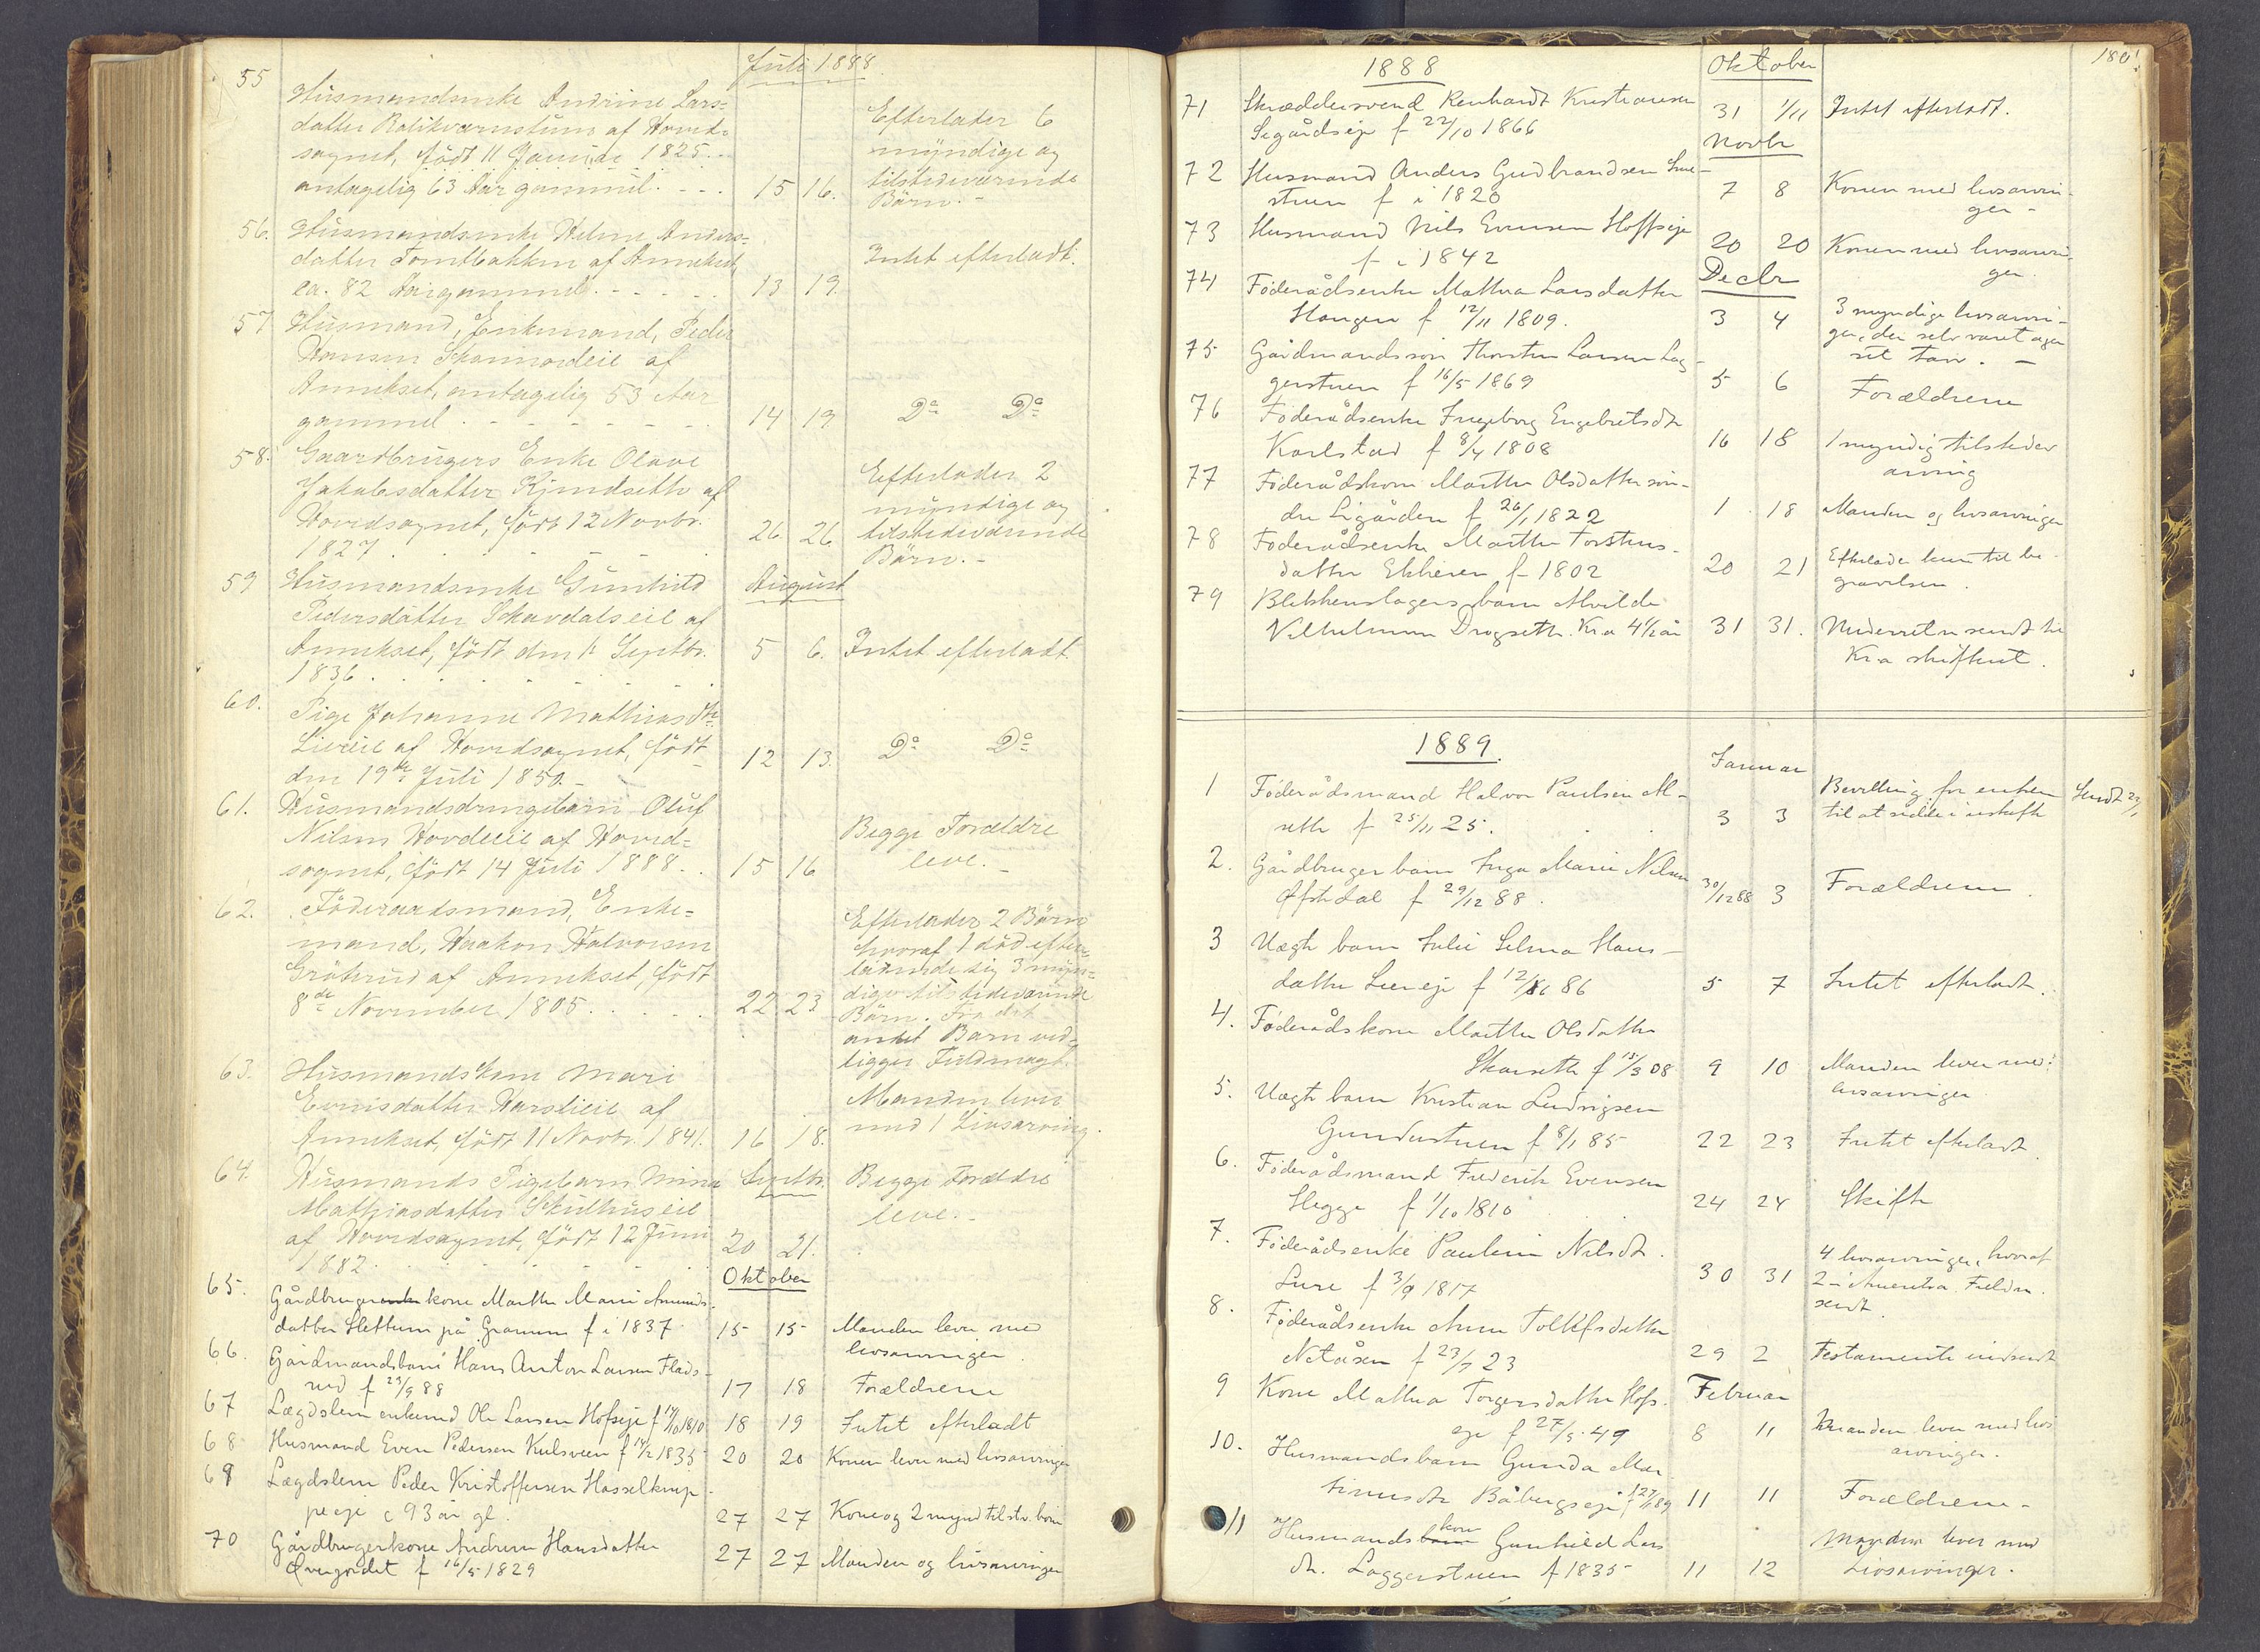 Juli 1888.
55
Husmandsenke Andrine Lars=
datter af Hoved=
sognet, födt 11 Januar 1825
antagelig 63 Aar gammel. - - -
15 16.
Efterlader 6
myndige og
tilstedeværende
Börn. -
56. Husmandsenke Helene Anders=
datter Tomtbakken af Annekset,
ca. 82 Aar gammel. - - - - -
13 19.
Intet efterladt.
57 Husmand, Enkemand, Peder
Hansen af
Annekset, antagelig 53 Aar
gammel. - - - - - -
14 19
Do Do
58. Gaardbrugers Enke Olave
Jakobsdatter af
Hovedsognet, födt 12 Novbr.
1827.
26 26
Efterlader 2
myndige og
tilstedeværende
Börn. -
August
59 Husmandsenke Gunhild
Pedersdatter Skavdalseie af
Annekset, födt den 1 Septbr.
1836.
5 6.
Intet efterladt.
60. Pige Johanne Mathiasdtr
Liereie af Hovedsognet, födt
den 19de Juli 1850 -
12 13.
Do Do
61. Husmandsdrengebarn Oluf
Nilsen Hovdeeie af Hoved=
sognet, födt 14 Juli 1888. .
15 16
Begge Forældre
leve. -
62. Föderaadsmand, Enke=
mand, Haakon Halvorsen
af Annekset, födt
8de November 1805. . . . .
22 23
Efterlader 2 Börn
hvoraf 1 död efter=
ladende sig 3 myn=
dige tilstedeværende
Börn. Fra det
andet Barn ved=
ligger Fuldmagt.
63. Husmandskone Mari
Evensdatter af
Annekset, födt 11 Novbr. 1841.
16 18.
Manden lever
med 1 Livsarving.
Septbr.
64. Husmands Pigebarn Mina
Mathiasdatter Skulhuseie
af Hovedsognet, födt 12 Juni
1882.
20 21.
Begge Forældre
leve. -
Oktober
65. Gårdbrugerkone Marthe Marie Amunds-
datter Slettum på Gramm f i 1837
15 15
Manden lever med
livsarvinger
66. Gårdmandsbarn Hans Anton Larsen Flads-
rud f 23/9 88
17 18 Forældrene
67 Lægdslem enkemd Ole Larsen Hofseje f 14/10 1810
18 19 Intet efterladt
68 Husmand Even Pedersen Kulsveen f 14/2 1835
20 20 Konen lever med livsarvinger
69 Lægdslem Peder Kristoffersen Hasselknip-
peeje c 93 år gl.
27 27 Kone og 2 mynd tilstv. börn
70 Gårdbrugerkone Andrine Hansdatter
Övergordet f 16/5 1829
27 27 Manden og livsarvinger
1888
Oktober
180.
71 Skræddersvend Renhardt Kristiansen
Segårdseje f 22/10 1866
31 1/11 Intet efterladt.
Novbr
72 Husmand Anders Gudbrandsen
stuen f i 1820
7 8 Konen med livsarvin-
ger -
73 Husmand Nils Evensen Hoffseje
f i 1842
20 20 Konen med livsarvin-
ger.
Decbr
74 Föderådsenke Mathea Larsdatter
Haugen f 12/11 1809.
3 4
3 myndige livsarvin-
ger, der selv varetager
sit tarv. -
75 Gårdmandssön Thorsten Larsen Lag-
gerstuen f 16/5 1869
5 6 Forældrene
76 Föderådsenke Ingeborg Engebretsdtr
Karlstad f 8/4 1808
16 18 1 myndig tilstedev
arving
77 Föderådskone Marthe Olsdatter sön-
dre Ligården f 26/1 1822
1 18 Manden og livsarvinger
78 Föderådsenke Marthe Torstens-
datter Ekheren f 1802
20 21 Efterlader kun til be-
gravelsen.
79 Blikkenslagers barn Alvilde
Vilhelmine Drogseth. Kr.a 4 1/2 år
31 31. sendt til
Kr.a skifteret.
1889.
Januar
1 Föderådsmand Halvor Paulsen Al-
seth f 25/11 25.
3 3
Bevilling for enken
til at sidde i uskifte
Sendt
2. Gårdbruger barn Inga Marie Nilsen
Öfstdal f 29/12 88.
30/12 88 3 Forældrene.
3 Uægte barn Julie Selma Hans-
datter Liereje f 86
5 7 Intet efterladt.
4. Föderådskone Marthe Olsdatter
Skarseth f 13/3 08
9 10 Manden lever med
livsarvinger
5. Uægte barn Kristian Ludvigsen
Gunderstuen f 8/1 85
22 23 Intet efterladt.
6. Föderådsmand Frederik Evensen
Hegge f 1/10 1810
24 24 Skifte
7. Föderådsenke Pauline Nilsdt.
Lure f 3/9 1817
30 31
4 livsarvinger, hvoraf
2 i Amerika. Fuldm.
sendt
8. Föderådsenke Anne Tollefsdatter
Netåsen f 23/7 23
29 2 Testamente indsendt
Februar
9 Kone Mathea Torgersdatter Hofs-
eje f 27/5 49
8 11 Manden lever med livs
arvinger.
10. Husmandsbarn Gunda Mar
tinusdtr Båbergseje f 27/1 89
11 11 Forældrene -
11 Husmandskone Gunhild Lars
dtr. Laggerstuen f 1835
11 12
Manden lever med
Livsarvinger.